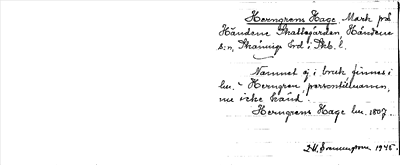 Herngrens Hage, Mark på
Händene Skattegården Händene
s:n, Skånings hd i Skb. l.
Namnet ej i bruk finnes i
hu. - Herngren, persontillnamn,
nu icke känd
Herngrens Hage hu. 1807.
1945.